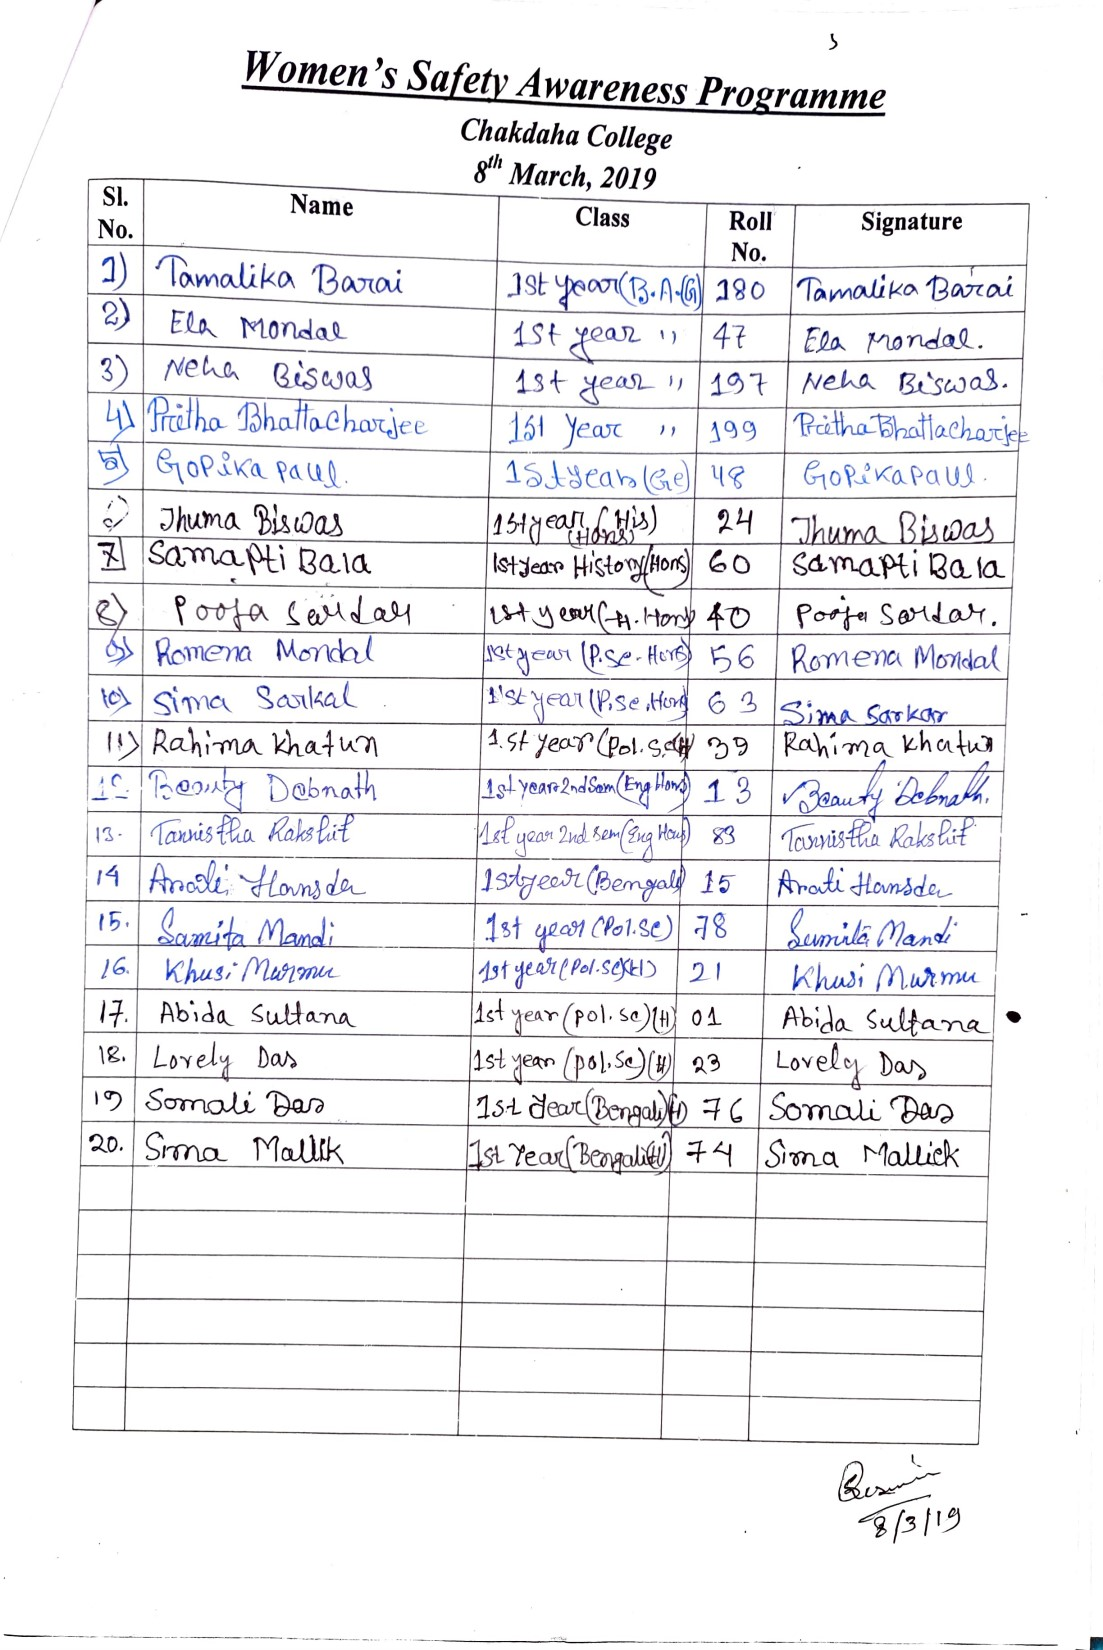 Women's Safety Awareness Programme
Chakdaha College
8th March, 2019
Sl. No. Name Class Roll No. Signature
1) Tamalika Barai 1st year (B.A.(G) 180 Tamalika Barai
2) Ela Mondal 1st year ,, 47 Ela Mondal.
3) Neha Biswas 1st year ,, 197 Neha Biswas.
4) Pritha Bhattacharjee 1st Year ,, 199 Pritha Bhattacharjee
5) Gopika paul. 1st year (Ge) 48 Gopika paul.
Jhuma Biswas 1st year (His) (Hons) 24 Jhuma Biswas
7 Samapti Bala 1st year History (Hons) 60 Samapti Bala
8) Pooja Sardar 1st year (H. Hons) 40 Pooja Sardar.
9) Romena Mondal 1st year (P.Sc. Hons) 56 Romena Mondal
10) Sima Sarkal 1'st year (P.Sc. Hons) 63 Sima Sarkar
11) Rahima Khatun 1.st year (Pol.Sc(H) 39 Rahima Khatun
12. Beauty Debnath 1st year 2nd Sem (Eng Hons) 13 Beauty Debnath.
13. Tannistha Rakshit 1st year 2nd sem (Eng Hons) 83 Tannistha Rakshit
14 Arati Hansda 1st year (Bengali) 15 Arati Hansda
15. Samita Mandi 1st year (Pol.Sc) 78 Sumita Mandi
16. Khusi Murmu 1st year (Pol.Sc)(H) 21 Khusi Murmu
17. Abida Sultana 1st year (pol.sc)(H) 01 Abida Sultana
18. Lovely Das 1st year (pol.Sc)(H) 23 Lovely Das
19 Somali Das 1st Year (Bengali)(H) 76 Somali Das
20. Sima Mallik 1st Year (Bengali(H) 74 Sima Mallick
8/3/19